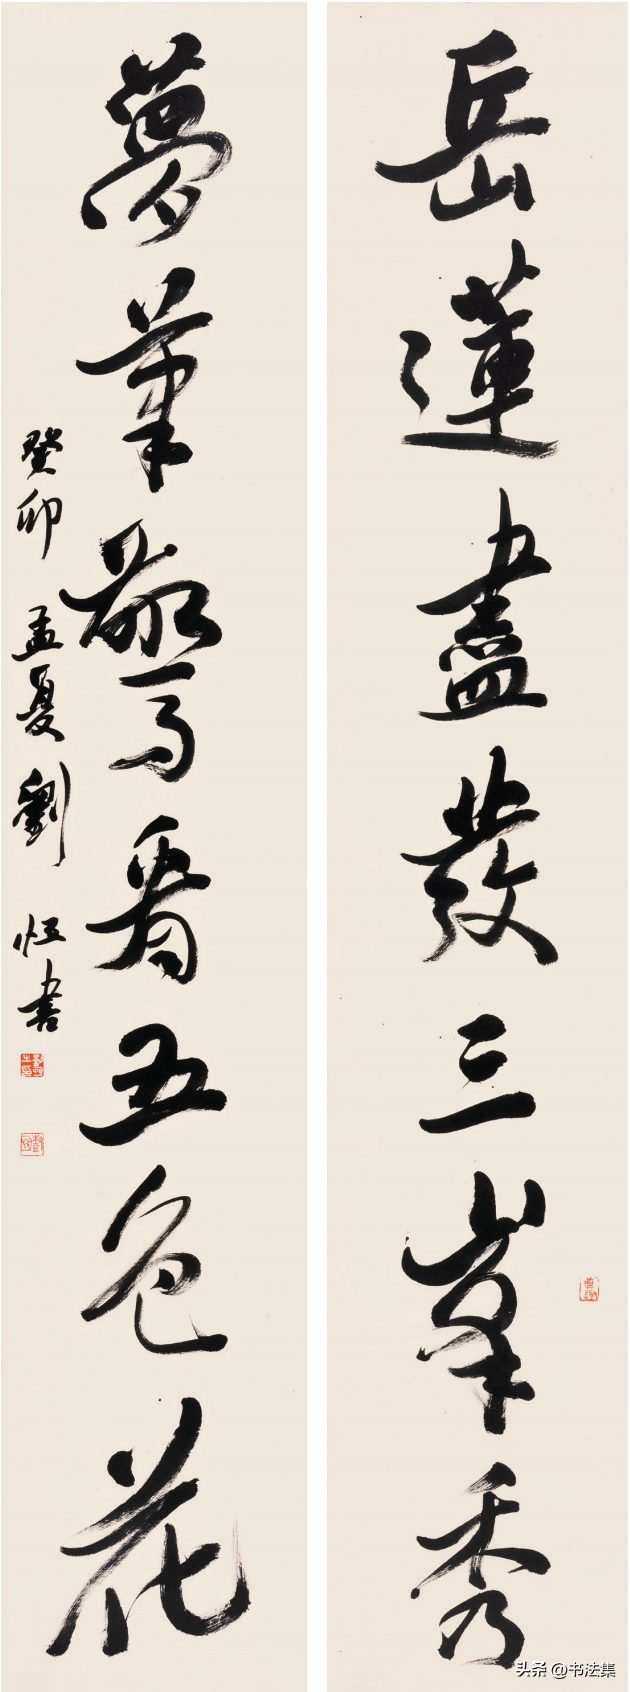 岳蓮盡發三峯秀
夢筆驚看五色花
癸卯孟夏劉恒書
头条 @书法集